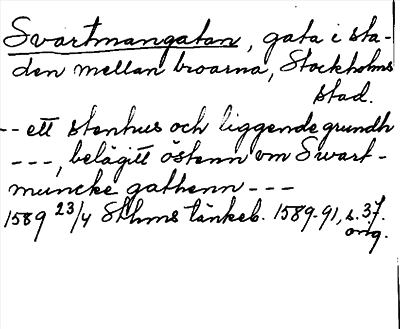 Svartmangatan, gata i sta-
den mellan broarna, Stockholms
stad.
-- ett stenhus och liggende grundh
---, belägitt östenn om Swart-
muncke gathenn ---
1589 23/4 Sthms tänkeb. 1589-91, s. 37.
orig.